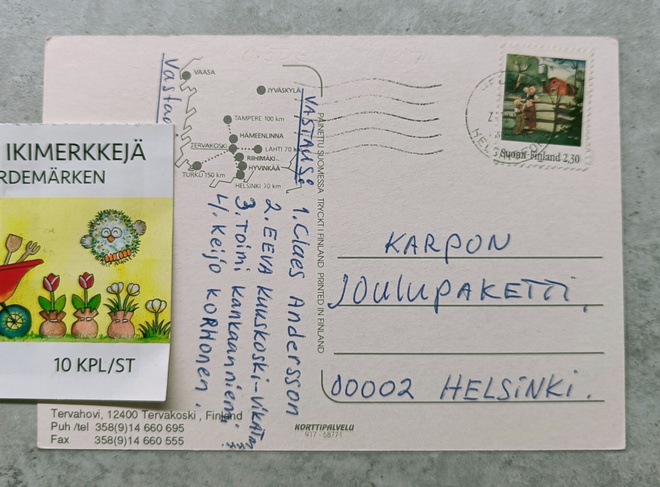 IKIMERKKEJÄ
RDEMÄRKEN
10 KPL/ST
VAASA
JYVÄSKYLÄ
TAMPERE 100 km
HÄMEENLINNA
TERVAKOSKI
LAHTI 70 k
RIIHIMÄKI
HYVINKÄÄ
TURKU 150 km
HELSINKI 70 km
VASTAUS:
1. Claes Andersson
2. EEVA KUUSKOSKI-
3. Toimi Kankaanniemi.
4. Keijo KORHONEN.
PAINETTU SUOMESSA TRYCKT I FINLAND PRINTED IN FINLAND
Suomi-Finland 2,30
KARPON
JOULUPAKETTI,
00002 HELSINKI.
Tervahovi, 12400 Tervakoski, Finland
Puh /tel 358(9)14 660 695
Fax 358(9)14 660 555
KORTTIPALVELU
917-58771